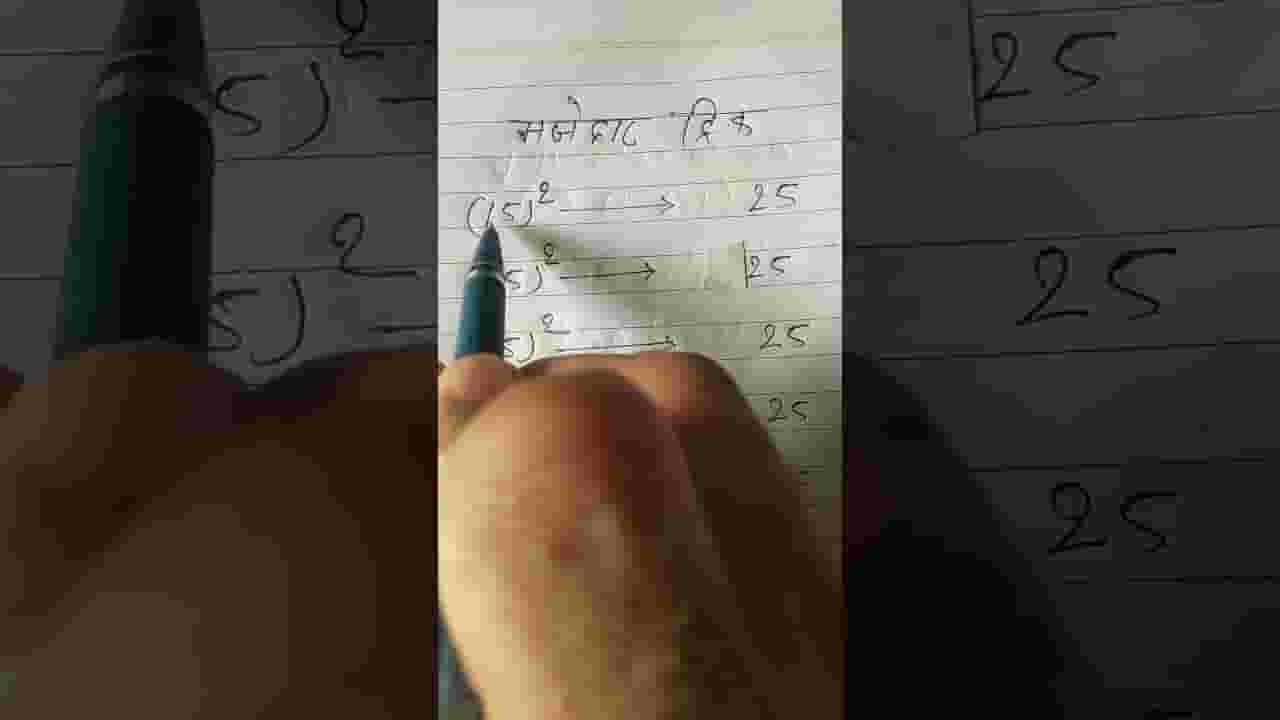 मजेदार ट्रिक
(15)² → 25
5)² → 25
5)² → 25
25